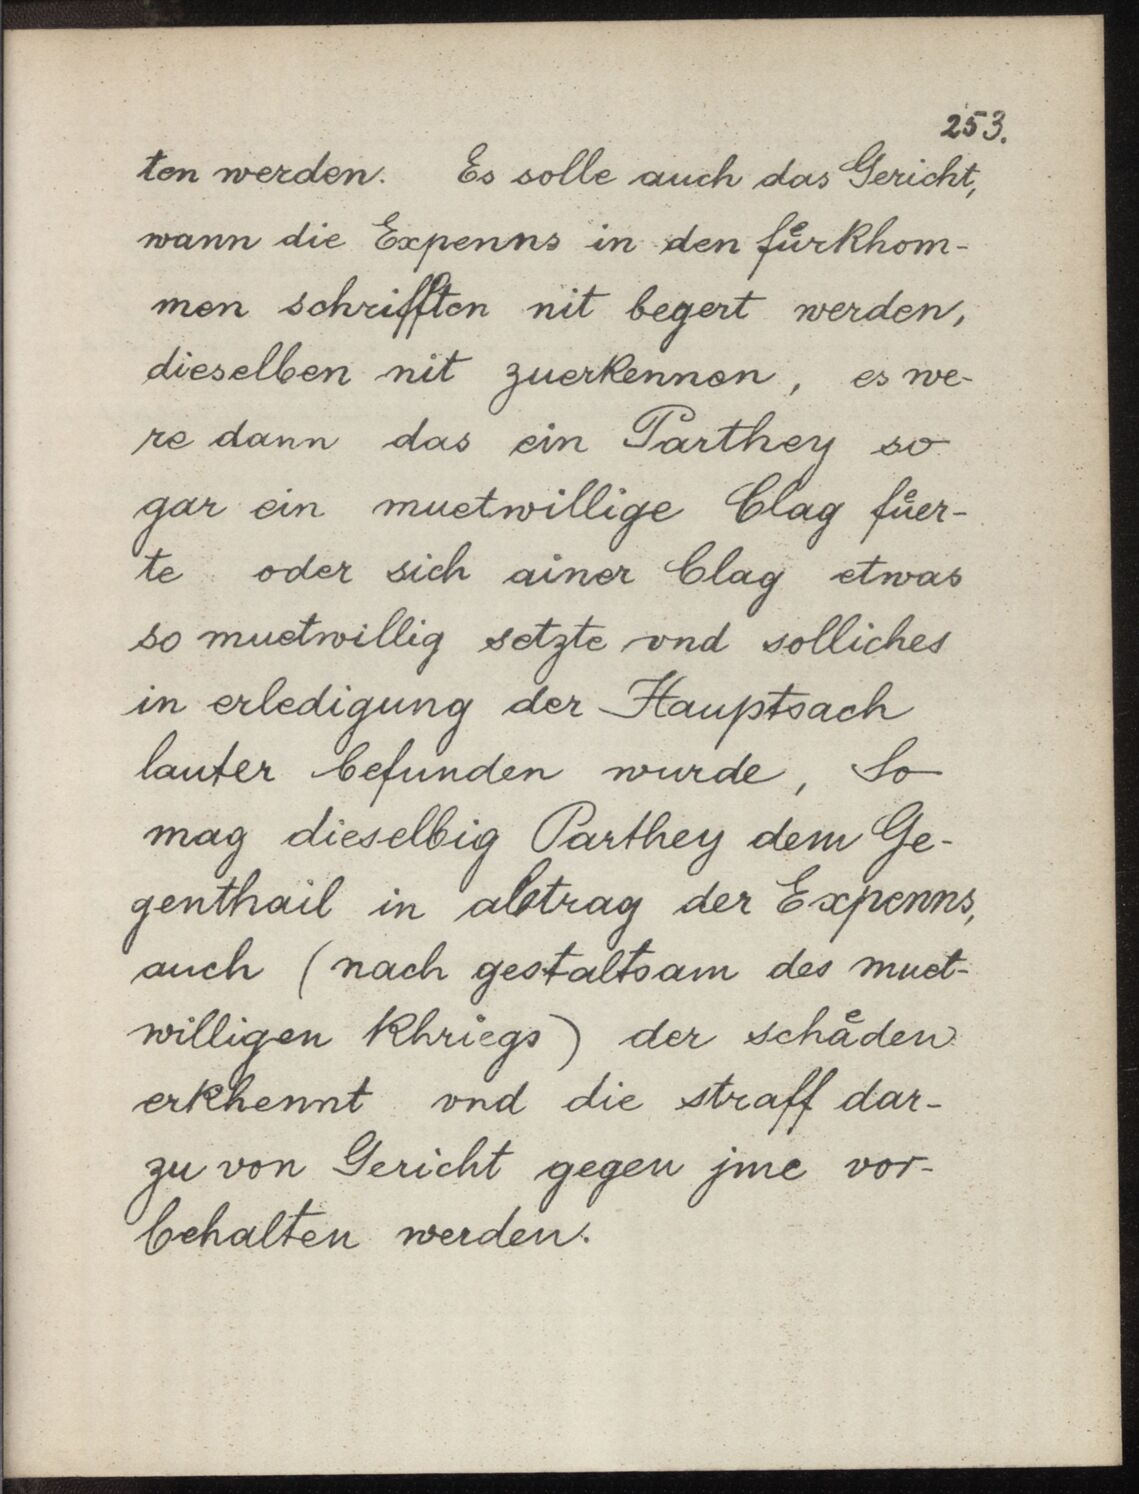 253.
ten werden. Es solle auch das Gericht,
wann die Expenns in den fuͤrkhom-
men schrifften nit begert werden,
dieselben nit zuerkennen, es we-
re dann das ein Parthey so
gar ein muetwillige Clag fuͤer-
te oder sich ainer Clag etwas
so muetwillig setzte vnd solliches
in erledigung der Hauptsach
lauter befunden wurde, So
mag dieselbig Parthey dem Ge-
genthail in abtrag der Expenns,
auch (nach gestaltsam des muet-
willigen Khriegs) der schaͤden
erkhennt vnd die straff dar-
zu von Gericht gegen jme vor-
behalten werden.